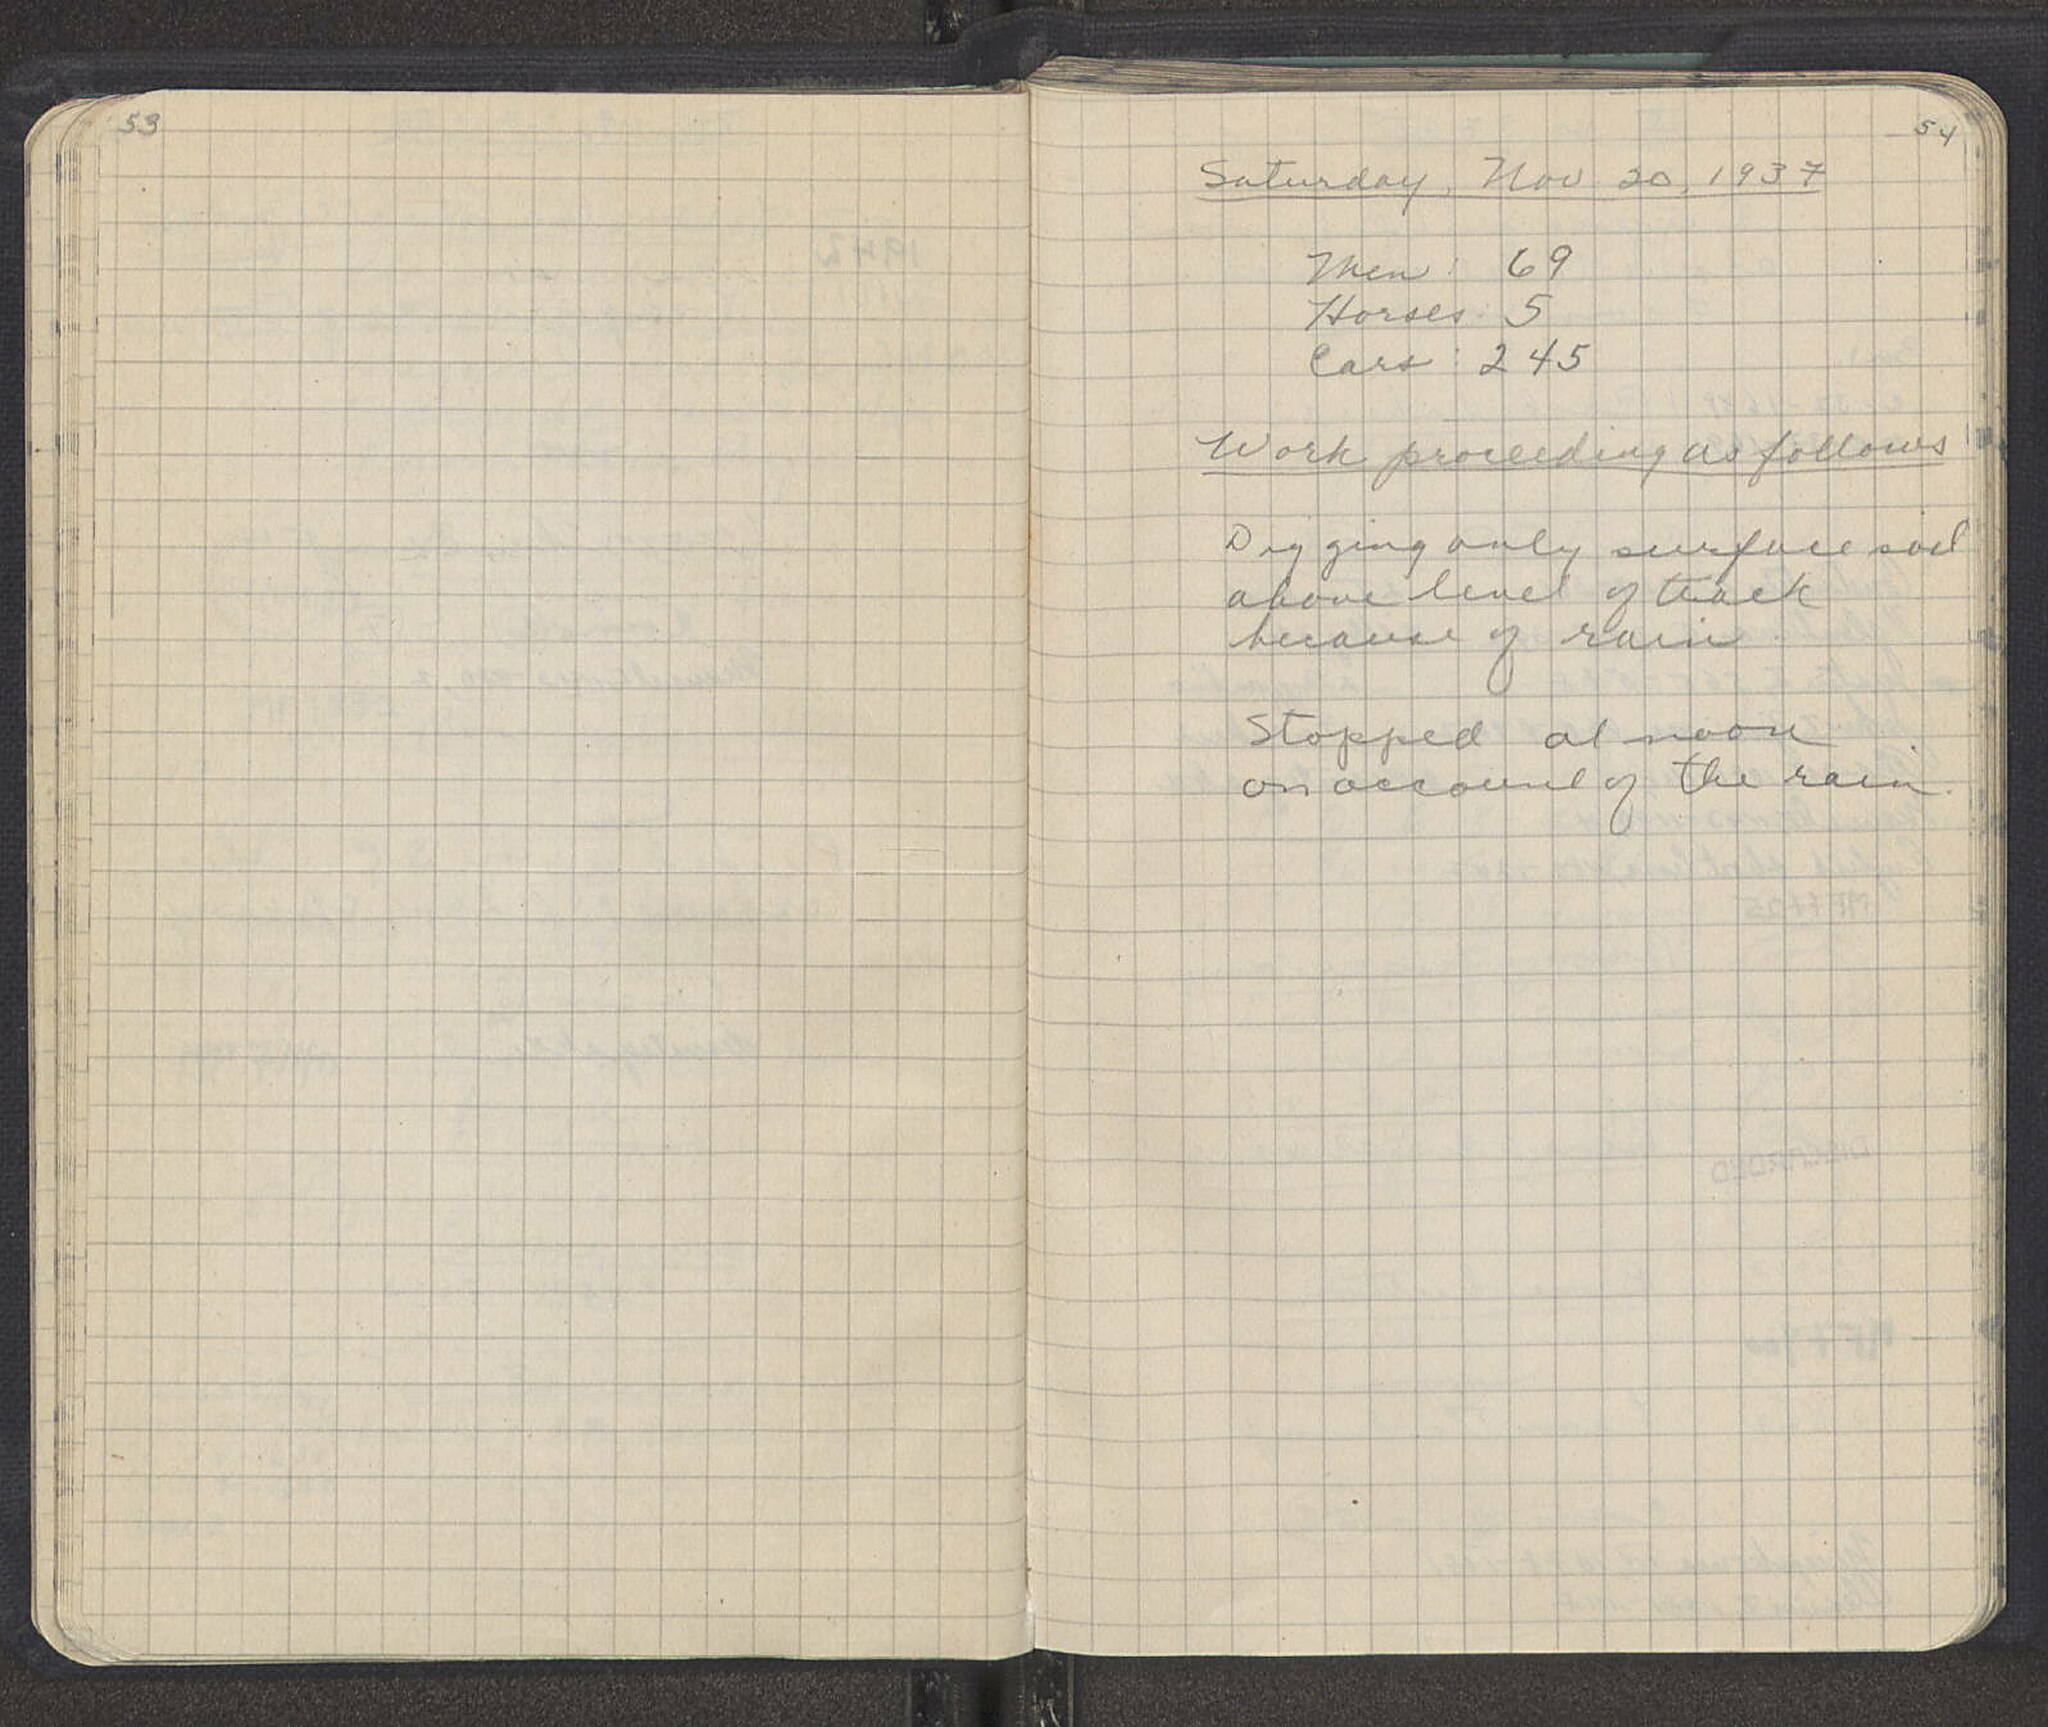 53
54
Saturday, Nov 20, 1937
Men: 69
Horses: 5
Cars: 245
Work proceeding as follows
Digging only surface soil
above level of track
because of rain.
Stopped at noon
on account of the rain.
1942
DISCARDED